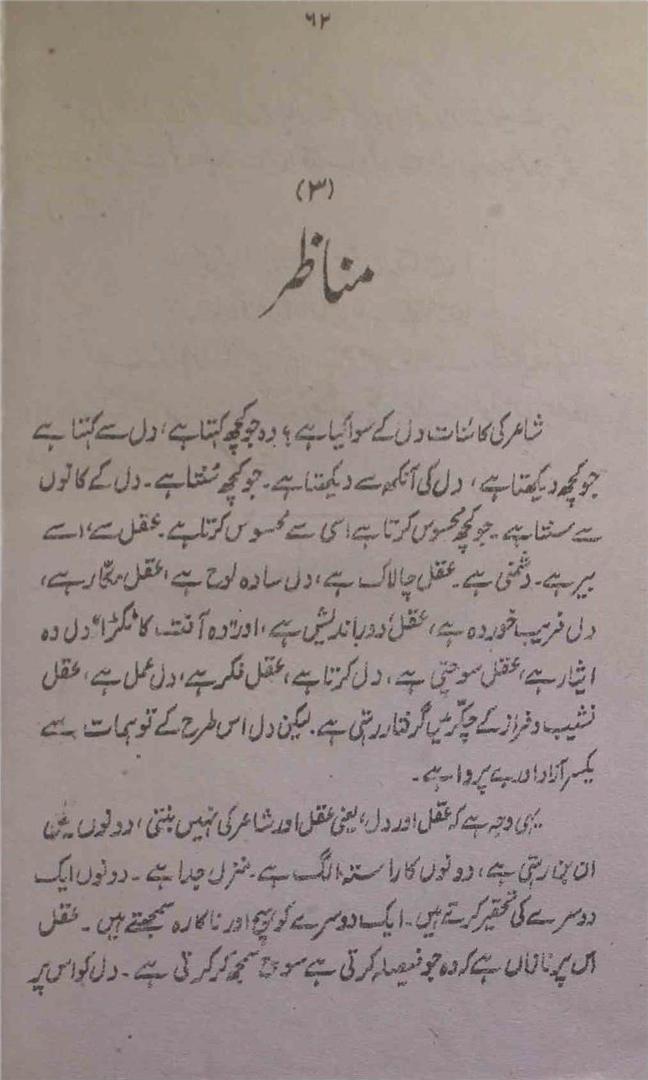 ۶۲
(۳)
مناظر
شاعر کی کائنات دل کے سوا کیا ہے ؟ وہ جو کچھ کہتا ہے، دل سے کہتا ہے
جو کچھ دیکھتا ہے، دل کی آنکھ سے دیکھتا ہے۔ جو کچھ سُنتا ہے۔ دل کے کانوں
سے سنتا ہے۔ جو کچھ محسوس کرتا ہے اسی سے محسوس کرتا ہے۔ عقل سے، اسے
بیر ہے۔ دشمنی ہے۔ عقل چالاک ہے، دل سادہ لوح ہے، عقل مکّار ہے،
دل فریب خوردہ ہے، عقل، دوراندیش ہے، اور "وہ آفت کا ٹکڑا" دل وہ
ایثار ہے، عقل سوچتی ہے، دل کرتا ہے، عقل فکر ہے، دل عمل ہے، عقل
نشیب و فراز کے چکّر میں گرفتار رہتی ہے۔ لیکن دل اس طرح کے توہمات سے
یکسر آزاد اور بے پروا۔ ہے۔
یہی وجہ ہے کہ عقل اور دل، یعنی عقل اور شاعر کی نہیں بنتی، دونوں میں
ان بن رہتی ہے، دونوں کا راستہ الگ ہے۔ منزل جدا ہے۔ دونوں ایک
دوسرے کی تحقیر کرتے ہیں۔ ایک دوسرے کو ہیچ اور ناکارہ سمجھتے ہیں۔ عقل
اس پر نازاں ہے کہ وہ جو فیصلہ کرتی ہے سوچ سمجھ کر کرتی ہے۔ دل کو اس پر